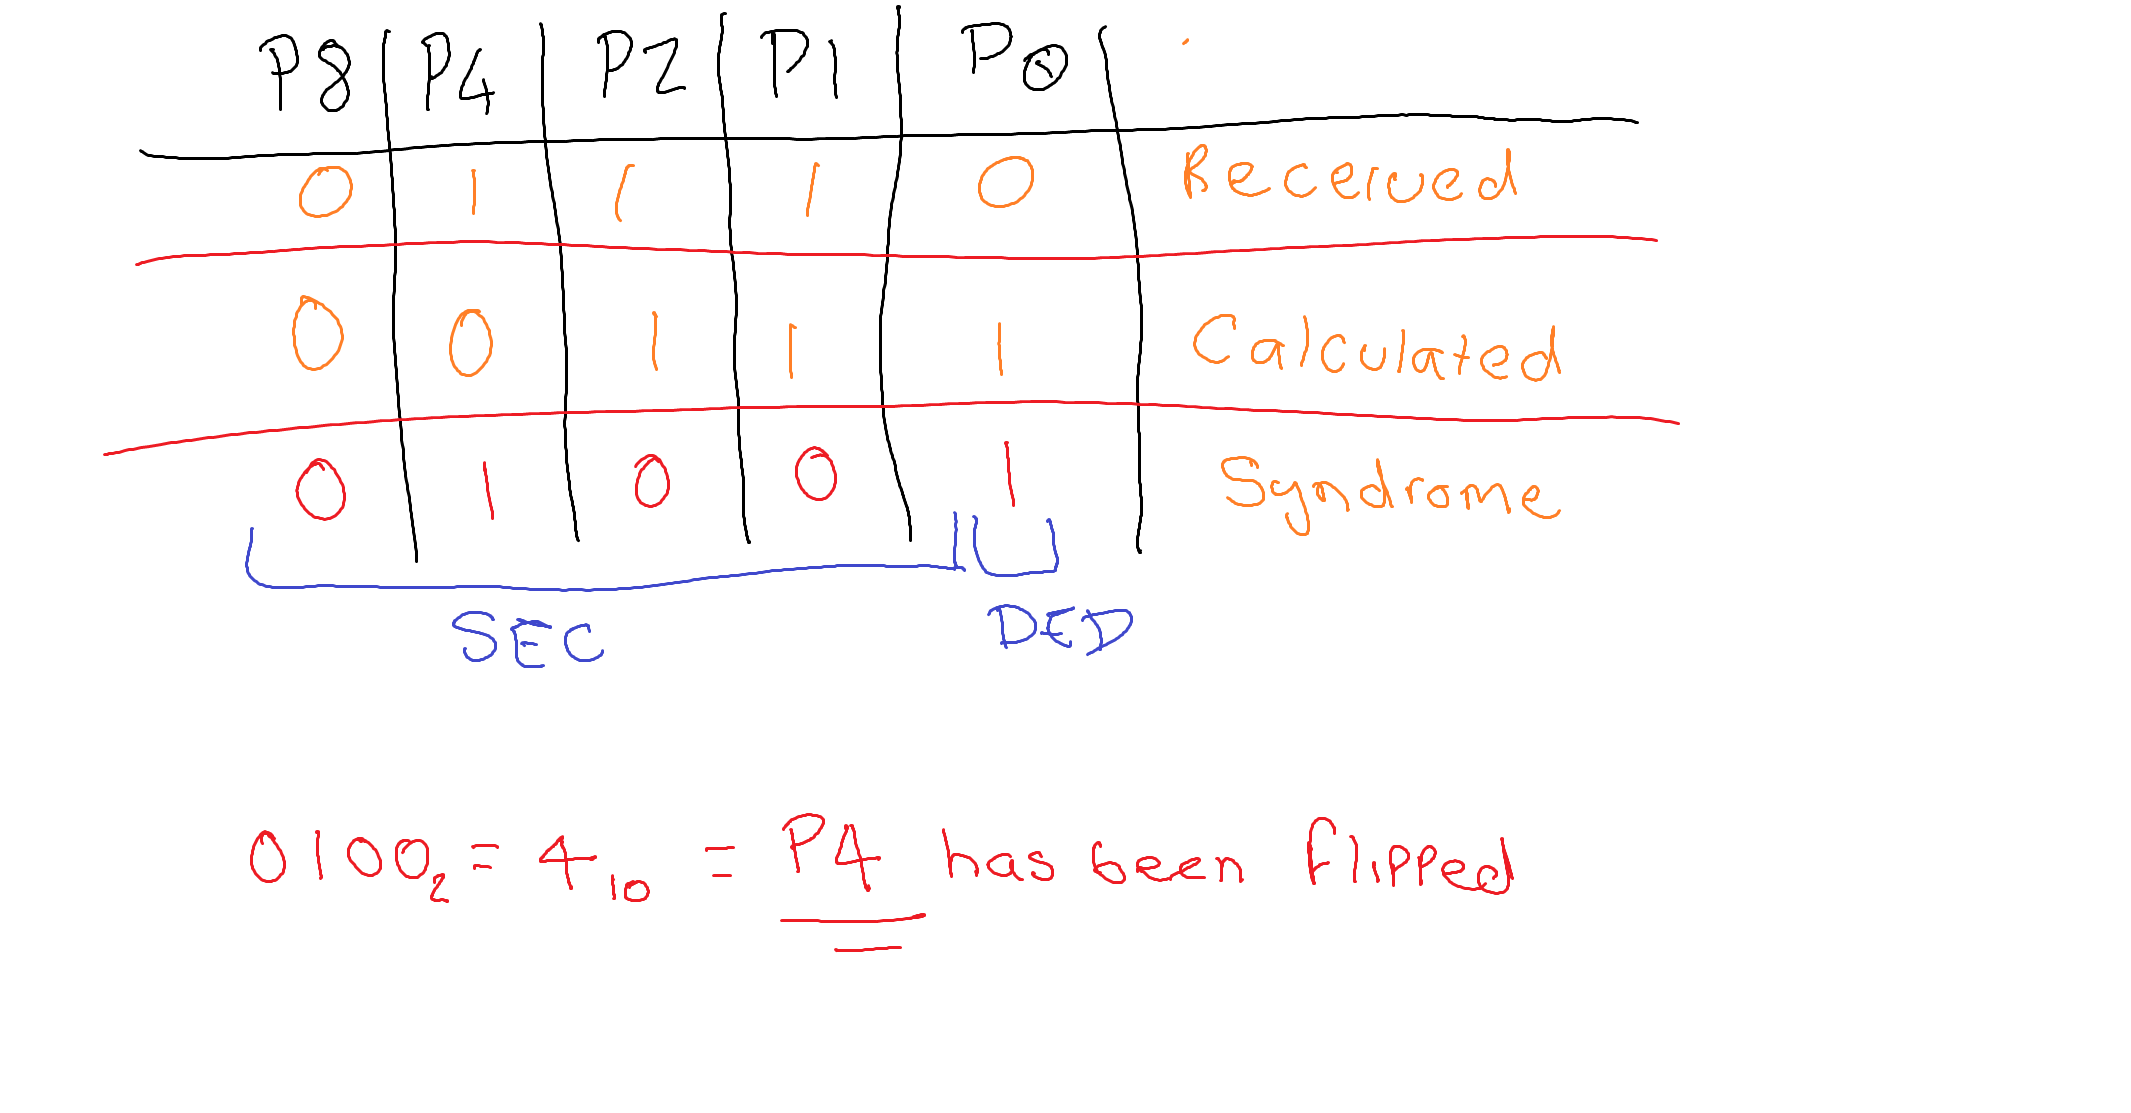 P8 P4 P2 P1 P0
0 1 1 1 0 Received
0 0 1 1 1 Calculated
0 1 0 0 1 Syndrome
SEC DED
0100₂ = 4₁₀ = P4 has been flipped